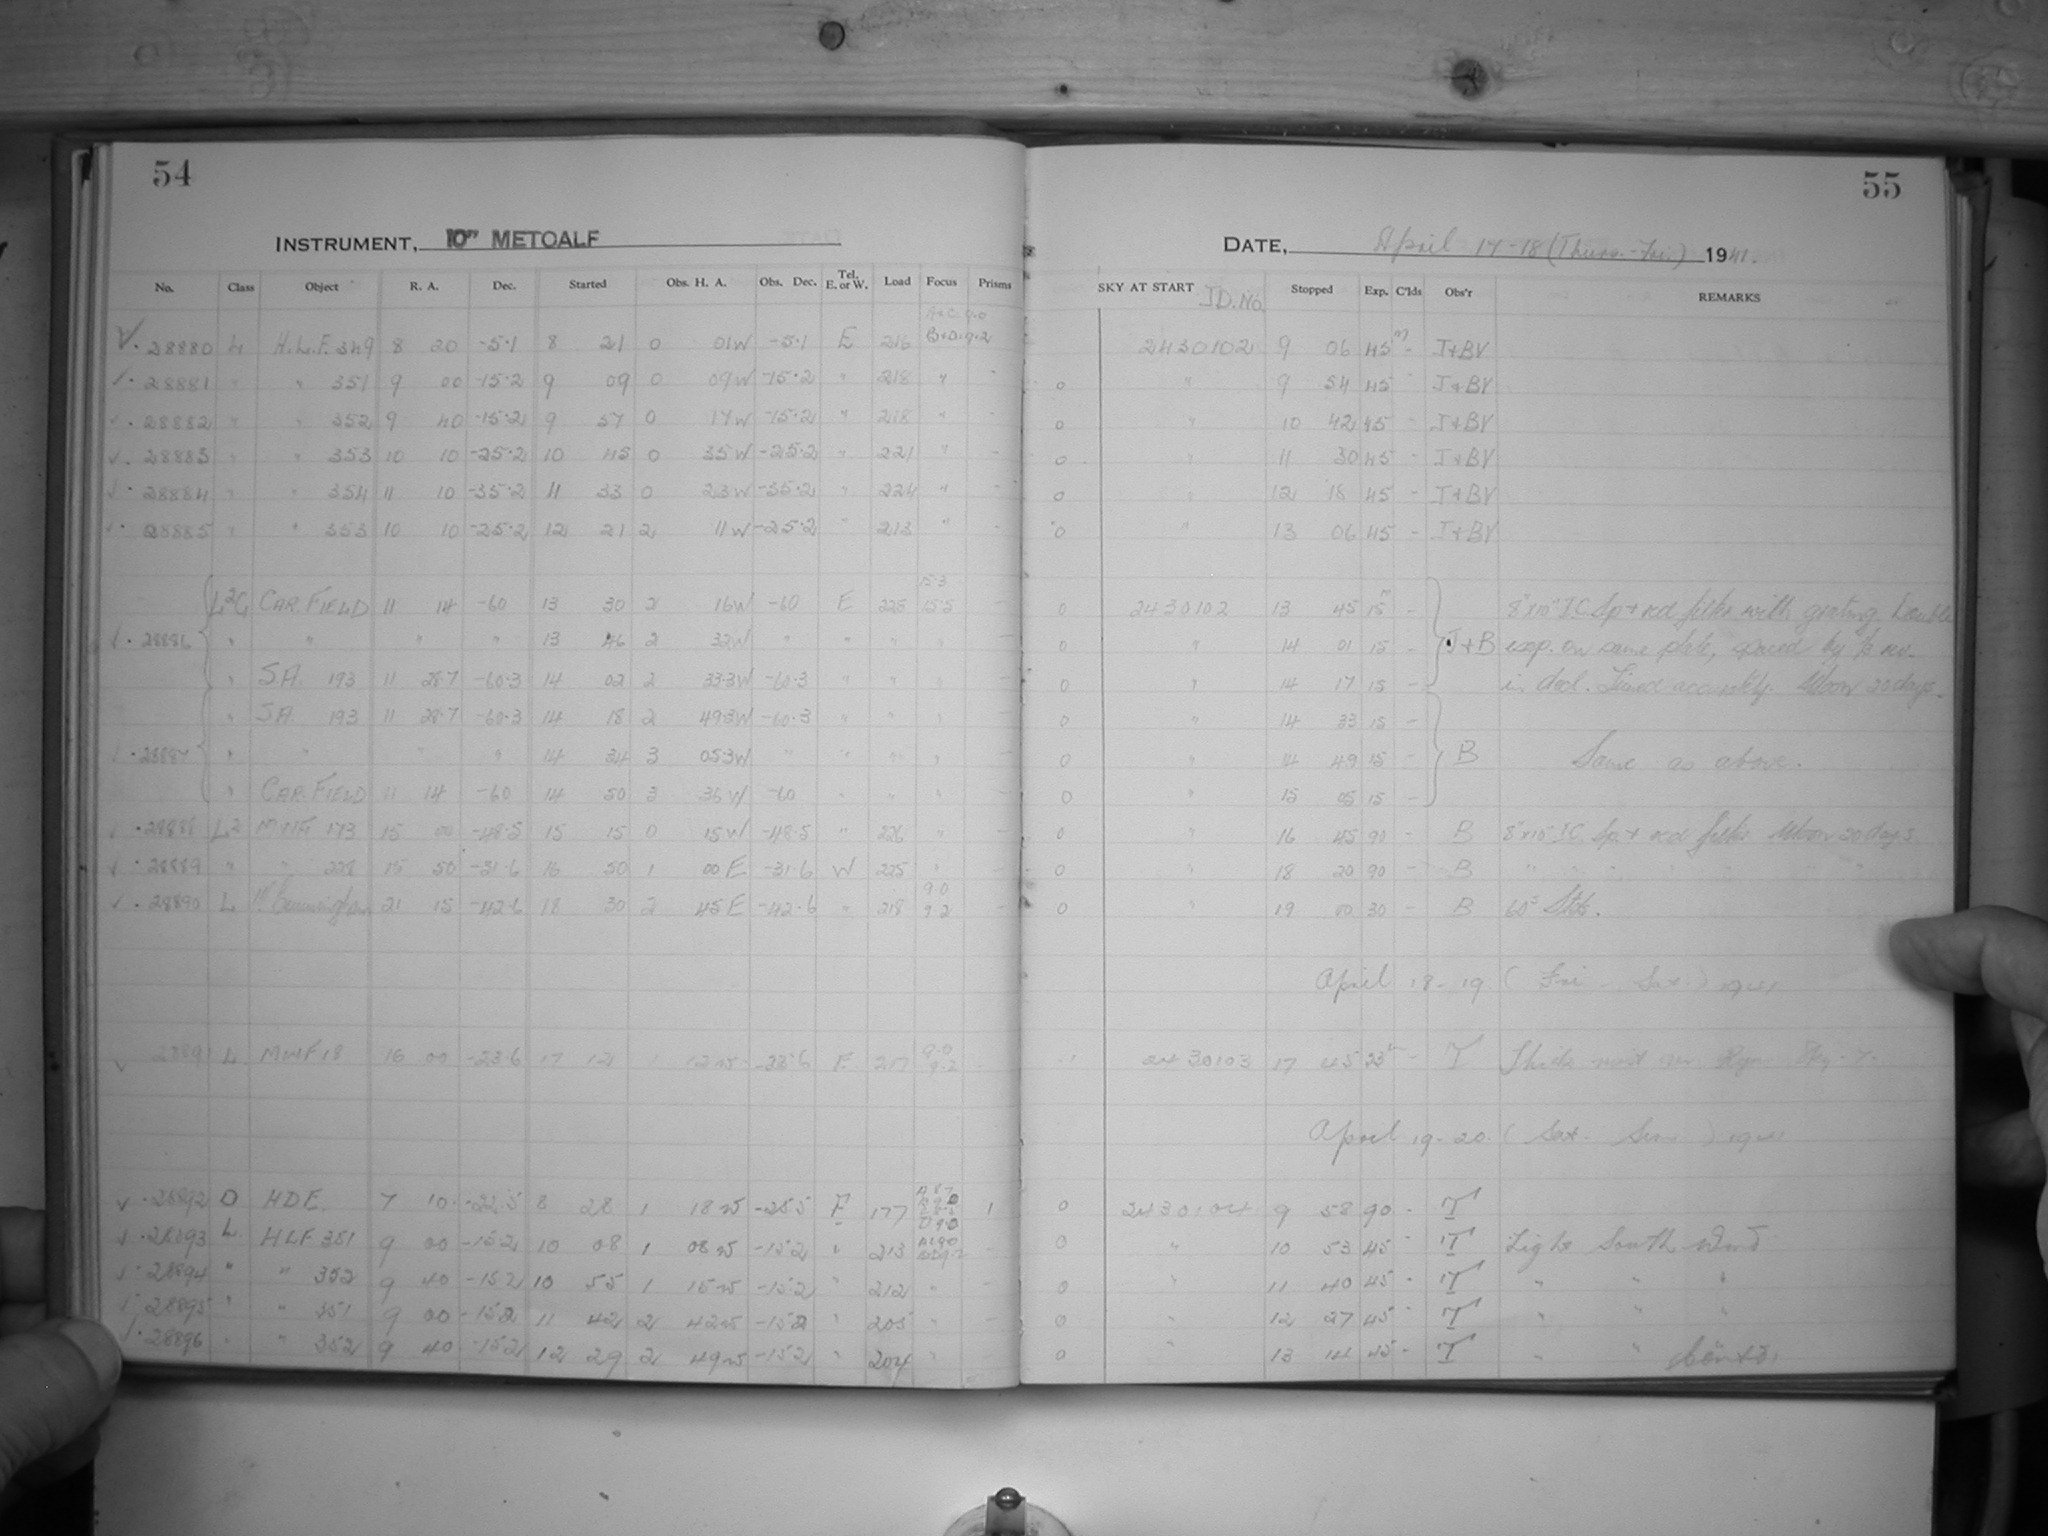 54
INSTRUMENT, 10" METCALF
No. Class Object R. A. Dec. Started Obs. H. A. Obs. Dec. Tel. E. or W. Load Focus Prisms
A+C 9.0
28880 L H.L.F. 349 8 20 -5.1 8 21 0 01W -5.1 E 216 B+D 9.2
28881 " " 351 9 00 -15.2 9 09 0 09W -15.2 " 218 " -
28882 " " 352 9 40 -15.2 9 57 0 17W -15.2 " 218 " -
28883 " " 353 10 10 -25.2 10 45 0 35W -25.2 " 221 " -
28884 " " 354 11 10 -35.2 11 33 0 23W -35.2 " 224 " -
28885 " " 353 10 10 -25.2 12 21 2 11W -25.2 " 213 " -
15.3
CAR. FIELD 11 14 -60 13 30 2 16W -60 E 225 15.5 -
28886 " " " " 13 46 2 32W " " " " -
" S.A. 193 11 28.7 -60.3 14 02 2 33.3W -60.3 " " " -
" S.A. 193 11 28.7 -60.3 14 18 2 49.3W -60.3 " " " -
28887 " " " " 14 34 3 05.3W " " " " -
" CAR. FIELD 11 14 -60 14 50 3 36W -60 " " " -
28888 L2 MWF 173 15 00 -48.5 15 15 0 15W -48.5 " 226 " -
28889 " " 228 15 50 -31.6 16 50 1 00E -31.6 W 225 " -
28890 L Cunningham 21 15 -42.6 18 30 2 45E -42.6 " 218 9.0 9.2 -
28891 L MWF 18 16 00 -23.6 17 12 1 12W -23.6 E 217 9.0 9.2 -
28892 D HDE. 7 10 8 28 1 18W E 177 1
28893 L HLF 351 9 00 -15.2 10 08 1 08W -15.2 " 213 -
28894 " " 352 9 40 -15.2 10 55 1 15W -15.2 " 212 " -
28895 " " 351 9 00 -15.2 11 42 2 42W -15.2 " 205 " -
28896 " " 352 9 40 -15.2 12 29 2 49W -15.2 " 204 "
55
DATE, April 17-18 (Thurs.-Fri.) 1941.
SKY AT START J.D. No. Stopped Exp. C'lds Obs'r REMARKS
2430102 9 06 45m - J+BV
0 " 9 54 45 - J+BV
0 " 10 42 45 - J+BV
0 " 11 30 45 - J+BV
0 " 12 18 45 - J+BV
0 " 13 06 45 - J+BV
0 2430102 13 45 15m - 8"x10" I.C. Sp. + red filter with grating. Double
0 " 14 01 15 - J+B exp. on same plate, spaced by
0 " 14 17 15 - in decl. Timed accurately. Moon 20 days.
0 " 14 33 15 -
0 " 14 49 15 - B Same as above.
0 " 15 05 15 -
0 " 16 45 90 - B 8"x10" I.C. Sp. + red filter Moon 20 days
0 " 18 20 90 - B " " " " " "
0 " 19 00 30 - B 60s Stops.
April 18-19 (Fri - Sat.) 1941
2430103 17 45 - T
April 19-20. (Sat. Sun) 1941
0 2430104 9 58 90 - T
0 " 10 53 45 - T Light South wind
0 " 11 40 45 - T " " "
0 " 12 27 45 - T " " "
0 " 13 14 45 - T " " Cont'd.